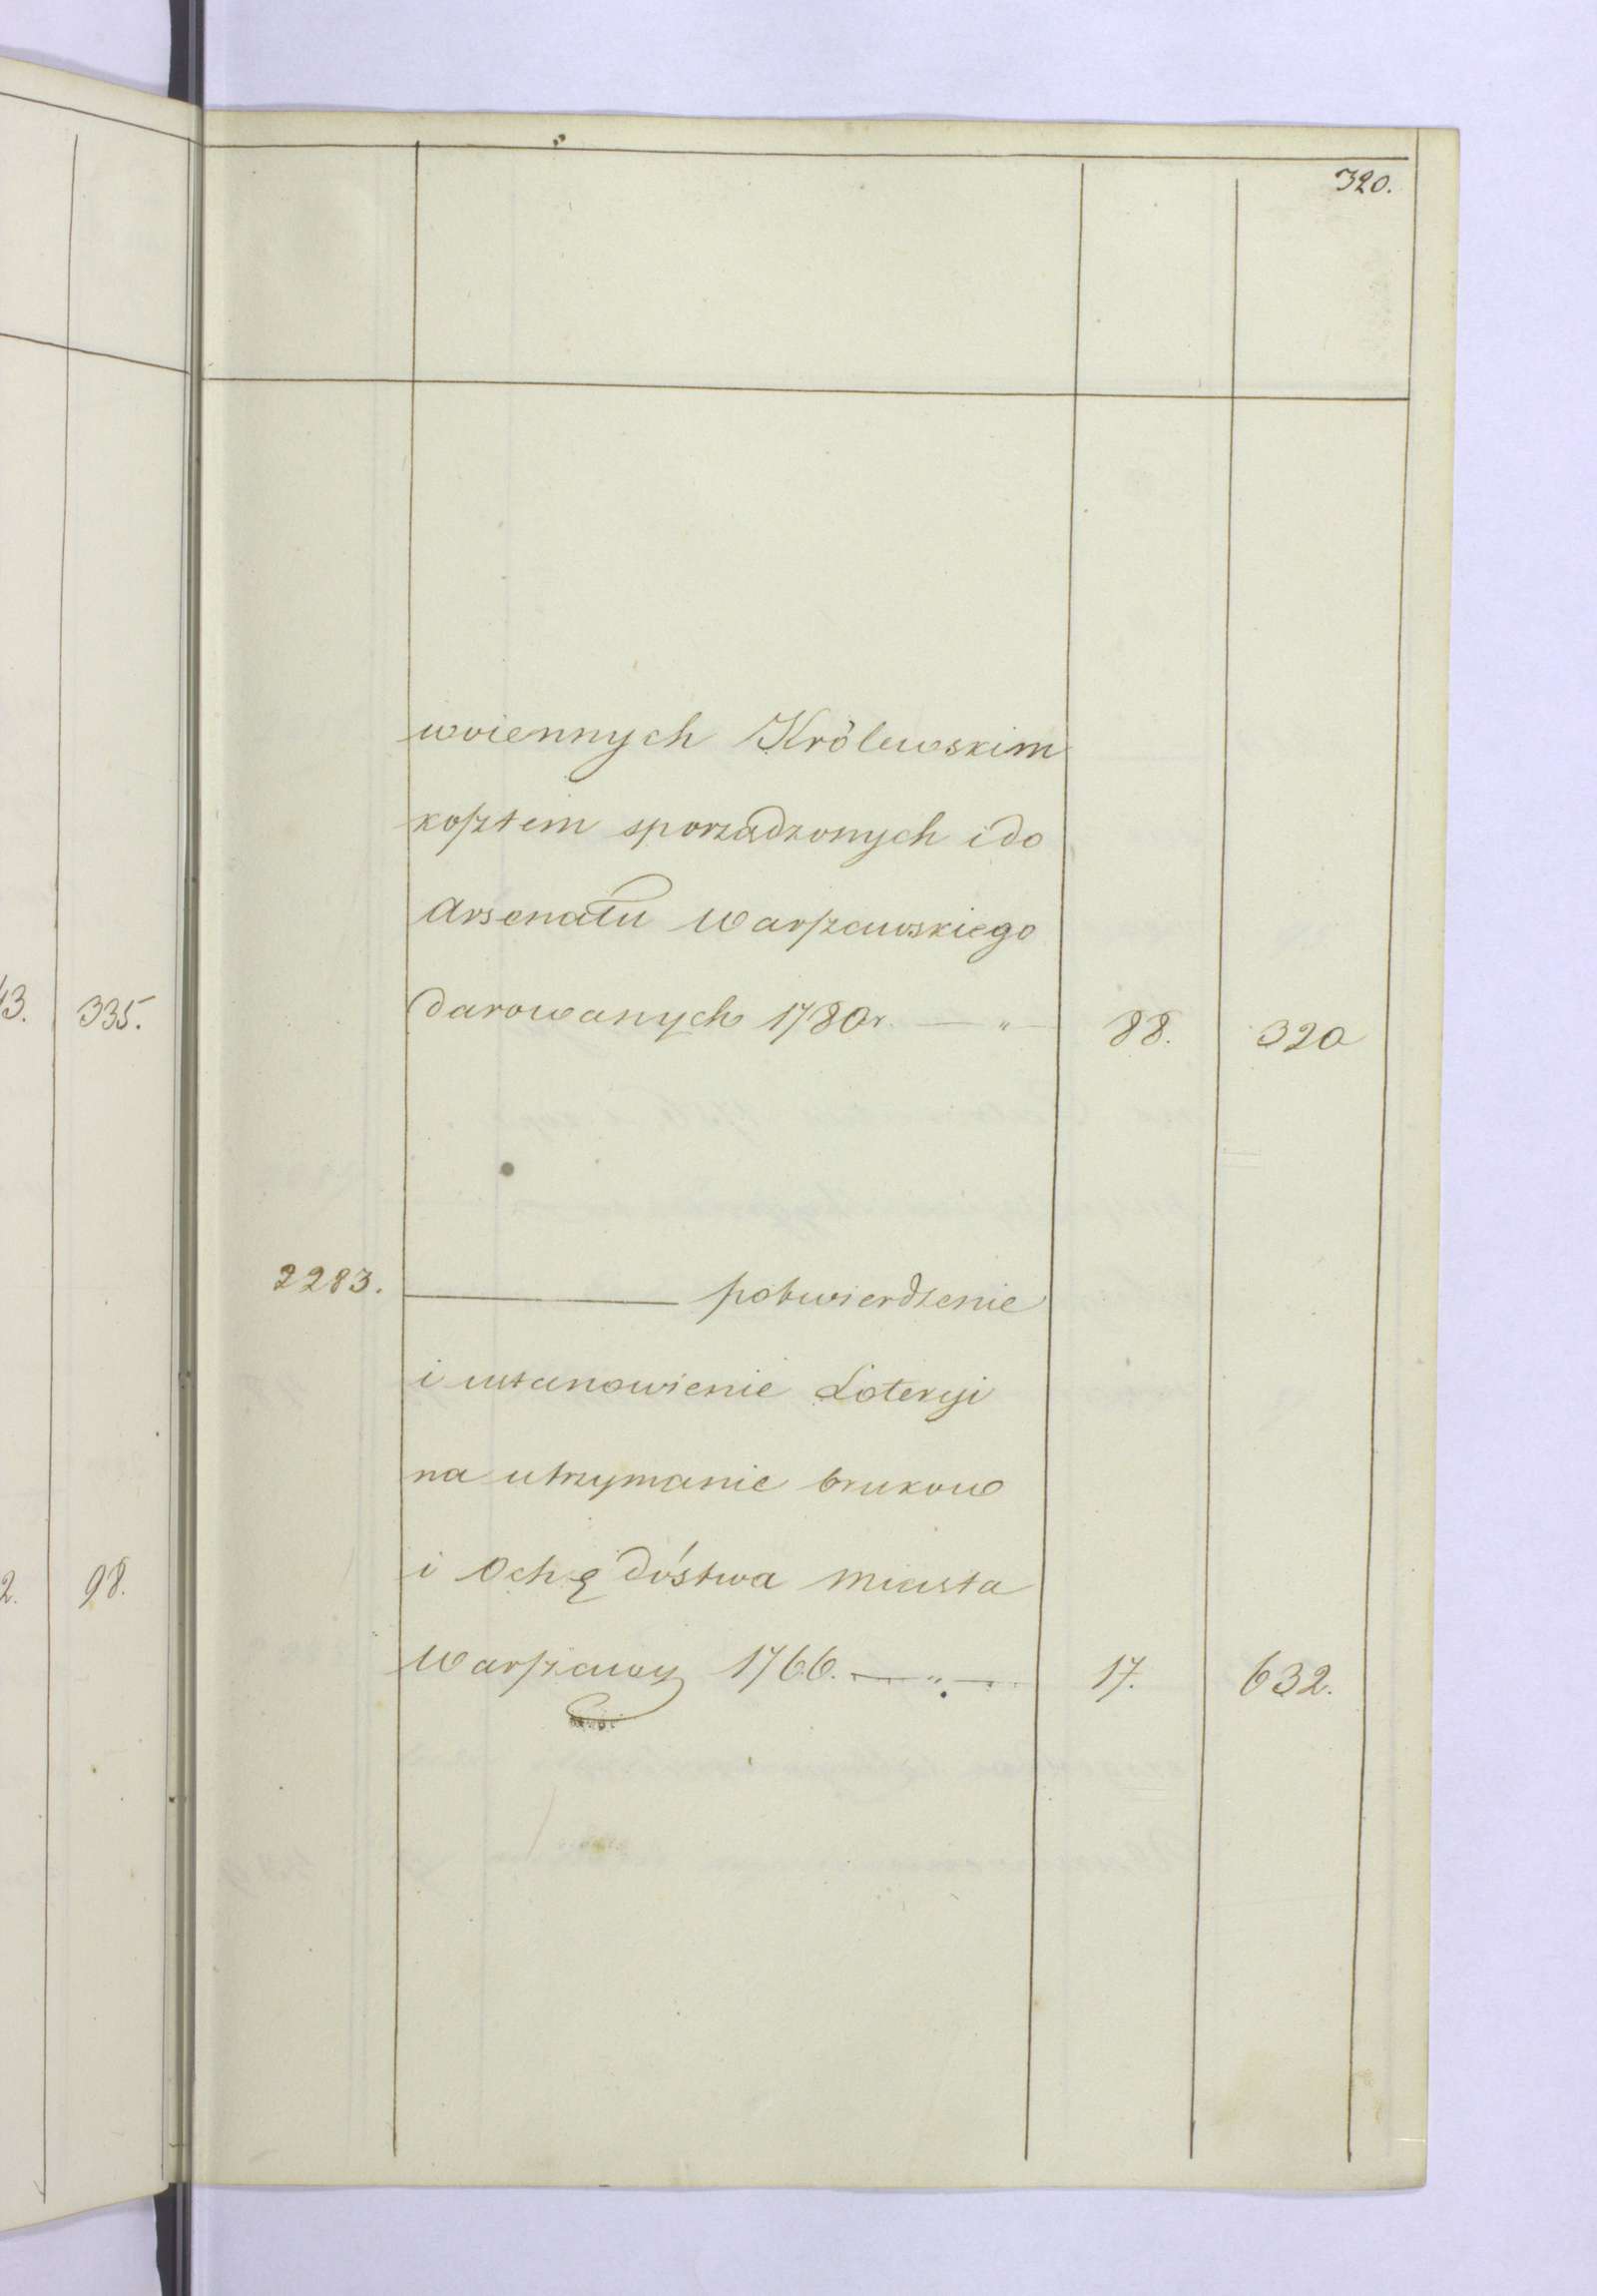 320.
woiennych Królewskim
kosztem sporządzonych i do
Arsenału Warszawskiego
darowanych 1780r. — " — 88. 320
43. 335.
2283. ——— potwierdzenie
i ustanowienie Loteryi
na utrzymanie brukow
i Ochędóstwa Miasta
2. 98.
Warszawy 1766. — " — 17. 632.